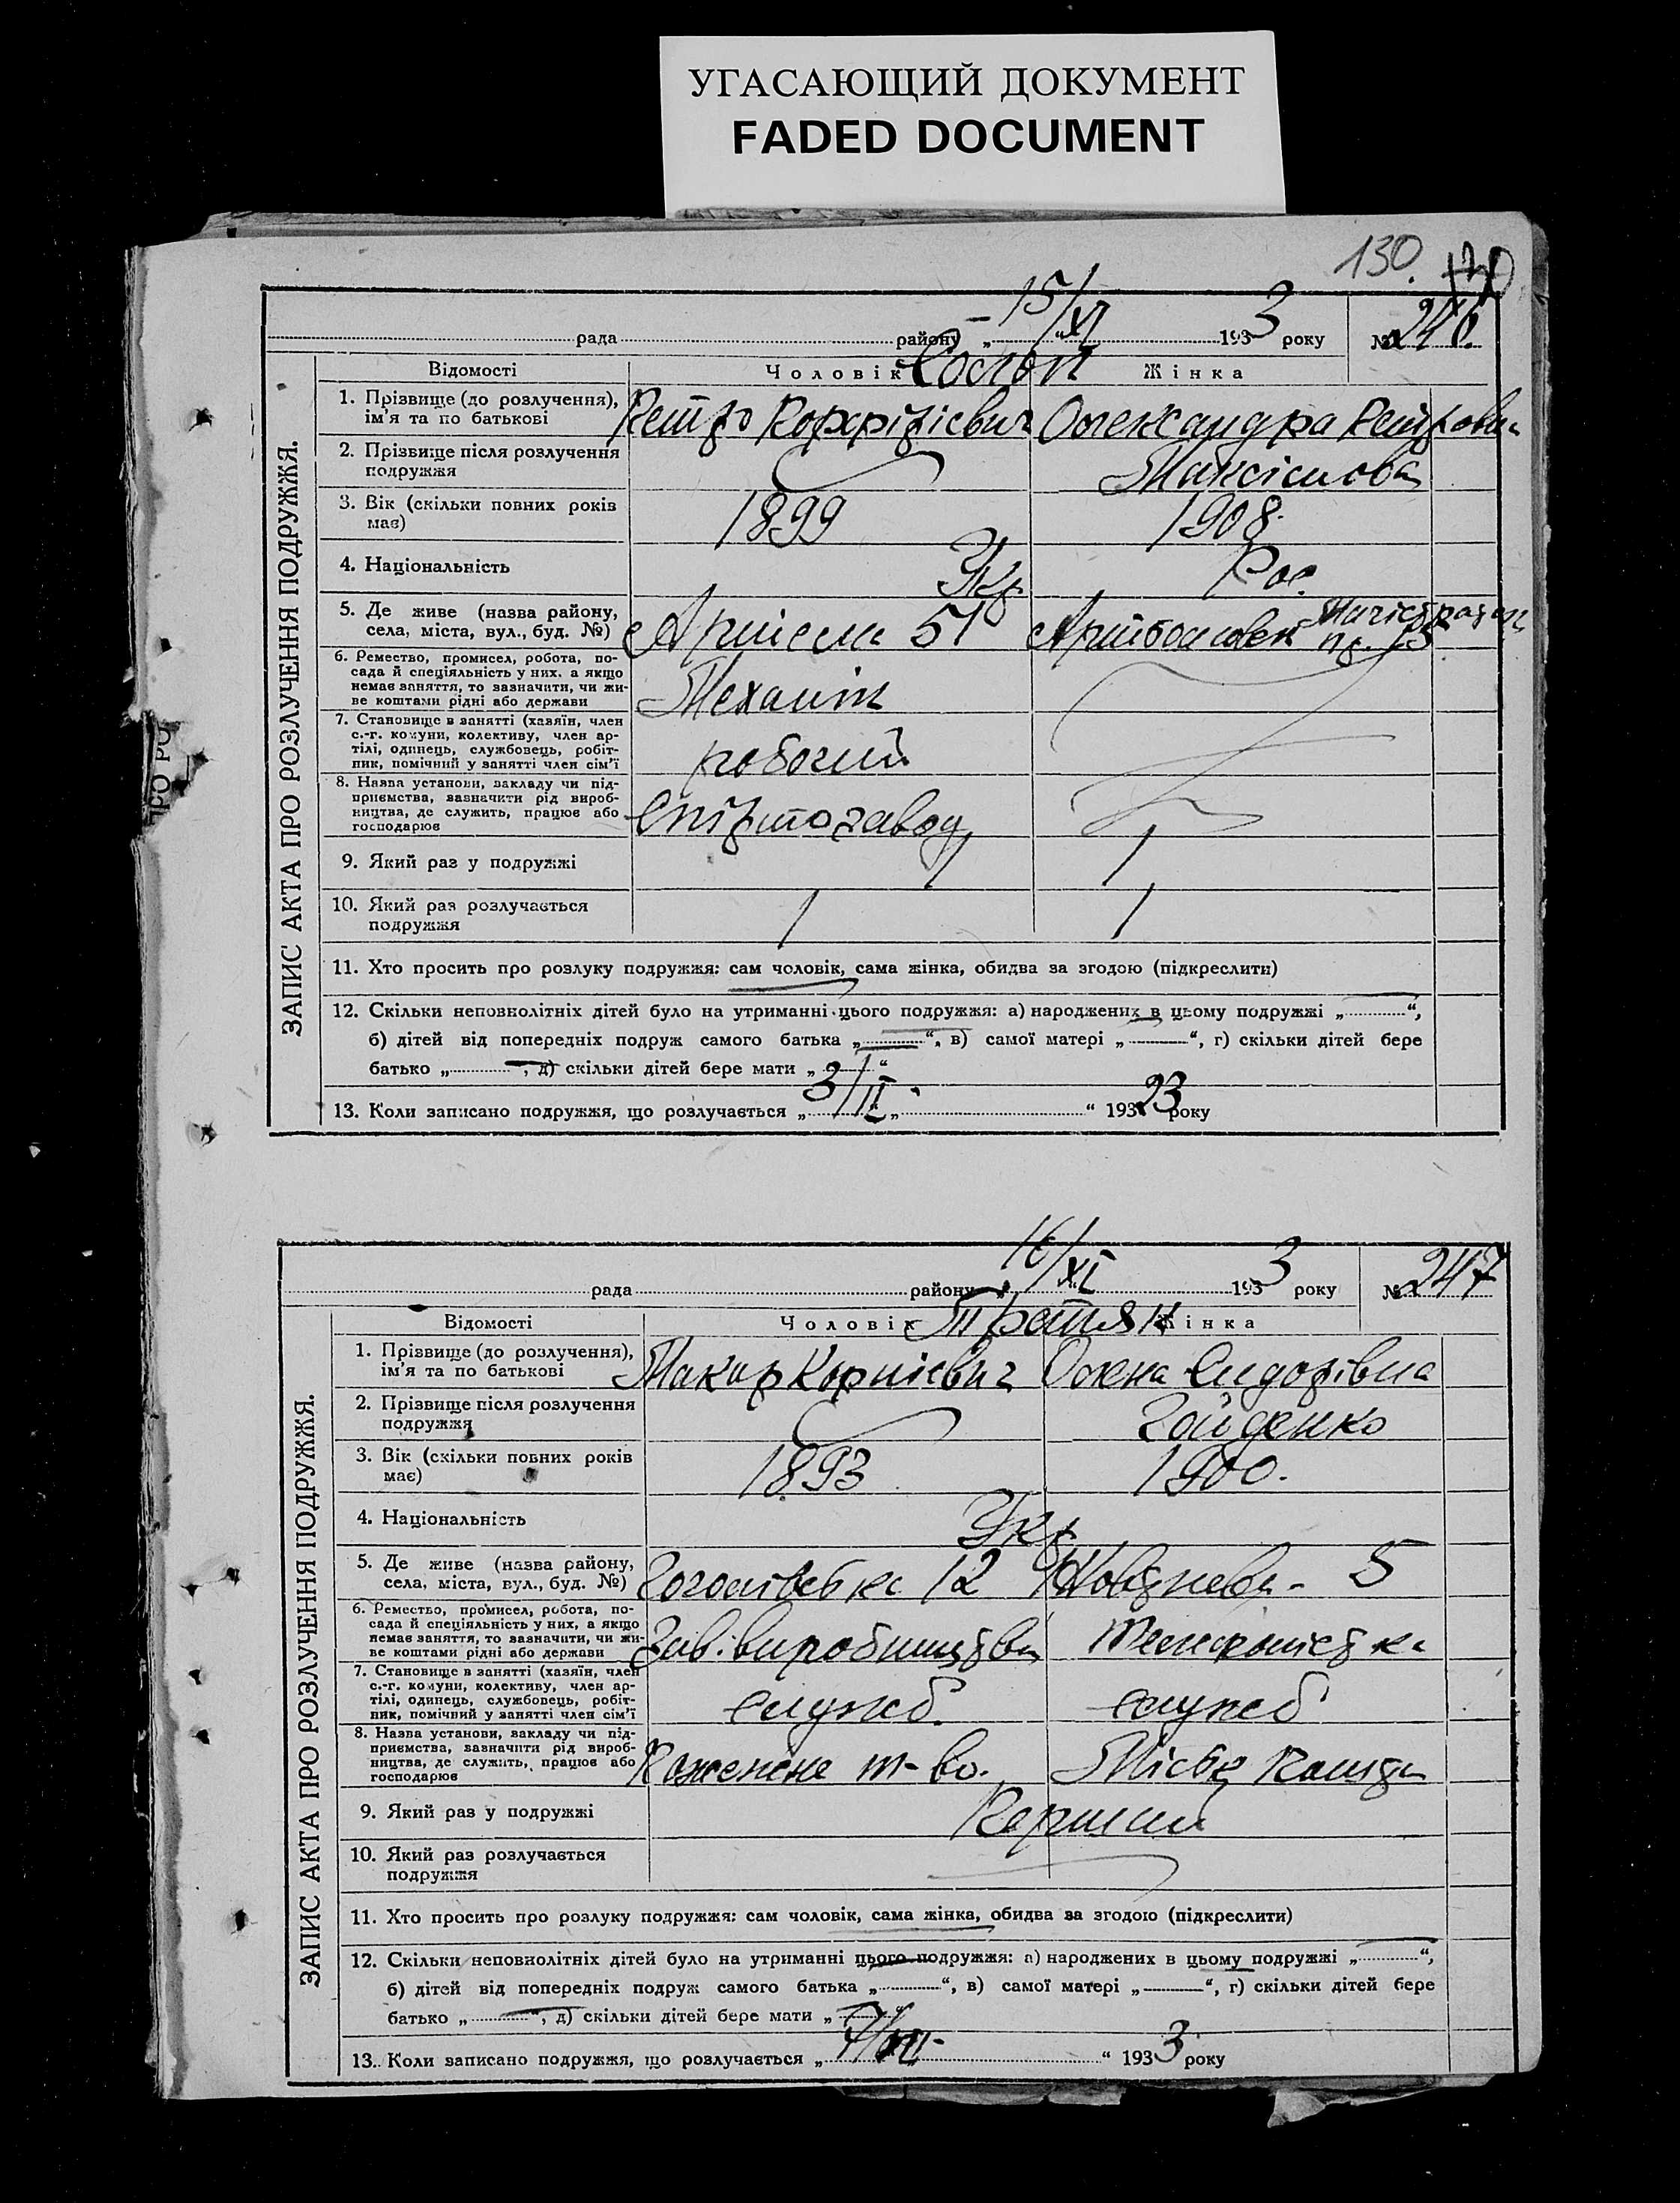 УГАСАЮЩИЙ ДОКУМЕНТ
FADED DOCUMENT
130.
ЗАПИС АКТА ПРО РОЗЛУЧЕННЯ ПОДРУЖЖЯ.
рада района „15/XI“ 1933 року № 246.
Відомості Чоловік Жінка
1. Прізвище (до розлучення), ім'я та по батькові Петро Порфірієвич Олександра Петровна
2. Прізвище після розлучення подружжя Максімова
3. Вік (скільки повних років має) 1899 1908.
4. Національність Укр. Рос.
5. Де живе (назва району, села, міста, вул., буд. №) Артема 51
6. Ремество, промисел, робота, по-
сада й спеціяльність у них, а якщо
немає заняття, то зазначити, чи жи-
ве коштами рідні або держави Механік
7. Становище в занятті (хазяїн, член
с.-г. комуни, колективу, член ар-
тілі, одинець, службовець, робіт-
ник, помічний у занятті член сім'ї робочий
8. Назва установи, закладу чи під-
приємства, зазначити рід вироб-
ництва, де служить, працює або
господарює Спіртозавод
9. Який раз у подружжі 1 1
10. Який раз розлучається подружжя 1 1
11. Хто просить про розлуку подружжя: сам чоловік, сама жінка, обидва за згодою (підкреслити)
12. Скільки неповнолітніх дітей було на утриманні цього подружжя: а) народжених в цьому подружжі „—“,
б) дітей від попередніх подруж самого батька „—“, в) самої матері „—“, г) скільки дітей бере
батько „—“, д) скільки дітей бере мати „ “
13. Коли записано подружжя, що розлучається „3/II„ “ 193 23 року
ЗАПИС АКТА ПРО РОЗЛУЧЕННЯ ПОДРУЖЖЯ.
рада району „16/XI“ 1933 року № 247
Відомості Чоловік Третяк Жінка
1. Прізвище (до розлучення), ім'я та по батькові Макар Корнієвич Олена Сидорівна
2. Прізвище після розлучення подружжя Гайденко
3. Вік (скільки повних років має) 1893 1900.
4. Національність Укр.
5. Де живе (назва району, села, міста, вул., буд. №) Гоголівська 12 5
6. Ремество, промисел, робота, по-
сада й спеціяльність у них, а якщо
немає заняття, то зазначити, чи жи-
ве коштами рідні або держави Зав. виробництва телефоністка
7. Становище в занятті (хазяїн, член
с.-г. комуни, колективу, член ар-
тілі, одинець, службовець, робіт-
ник, помічний у занятті член сім'ї служб. служб
8. Назва установи, закладу чи під-
приємства, зазначити рід вироб-
ництва, де служить, працює або
господарює т-во.
9. Який раз у подружжі Перший
10. Який раз розлучається подружжя
11. Хто просить про розлуку подружжя: сам чоловік, сама жінка, обидва за згодою (підкреслити)
12. Скільки неповнолітніх дітей було на утриманні цього подружжя: а) народжених в цьому подружжі „—“,
б) дітей від попередніх подруж самого батька „—“, в) самої матері „—“, г) скільки дітей бере
батько „—“, д) скільки дітей бере мати „
13. Коли записано подружжя, що розлучається „ “ 1933 року